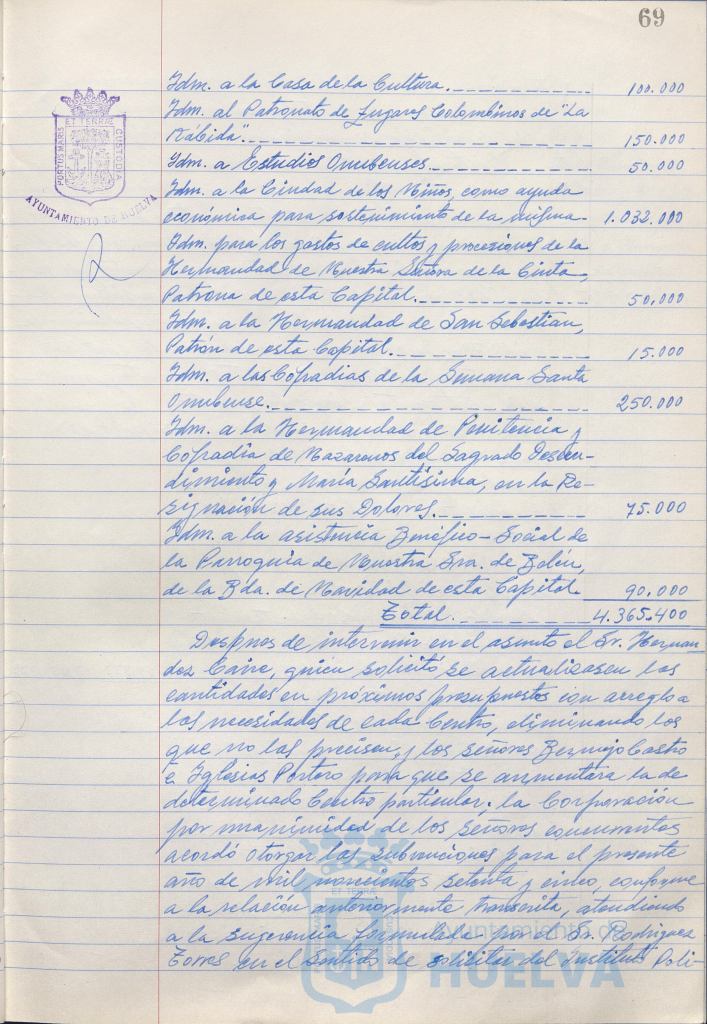 69
Idm. a la Casa de la Cultura. 100.000
Idm. al Patronato de Lugares Colombinos de "La
Rábida". 150.000
Idm. a Estudios Onubenses. 50.000
Idm. a la Ciudad de los Niños como ayuda
económica para sostenimiento de la misma. 1.032.000
Idm. para los gastos de cultos y procesiones de la
Hermandad de Nuestra Señora de la Cinta,
Patrona de esta Capital. 50.000
Idm. a la Hermandad de San Sebastian,
Patrón de esta Capital. 15.000
Idm. a las Cofradias de la Semana Santa
Onubense. 250.000
Idm. a la Hermandad de Penitencia y
Cofradia de Nazarenos del Sagrado Descen-
dimiento y María Santísima, en la Re-
signación de sus Dolores. 75.000
Idm. a la asistencia Benéfico-Social de
la Parroquia de Nuestra Sra. de Belén,
de la Bda. de Navidad de esta Capital. 90.000
Total. 4.365.400
Despues de intervenir en el asunto el Sr. Hernan-
dez Caire, quien solicitó se actualizasen las
cantidades en próximos presupuestos con arreglo a
las necesidades de cada Centro, eliminando los
que no las precisen, y los señores Bermejo Castro
e Iglesias Portero para que se aumentara la de
determinado Centro particular; la Corporación
por unanimidad de los señores concurrentes
acordó otorgar las subvenciones para el presente
año de mil novecientos setenta y cinco, conforme
a la relación anteriormente transcrita, atendiendo
a la sugerencia formulada por el Sr. Rodriguez
Torres en el sentido de solicitar del Instituto Poli-
PORTUS MARIS ET TERRÆ CUSTODIA
AYUNTAMIENTO DE HUELVA
Ayuntamiento de
HUELVA